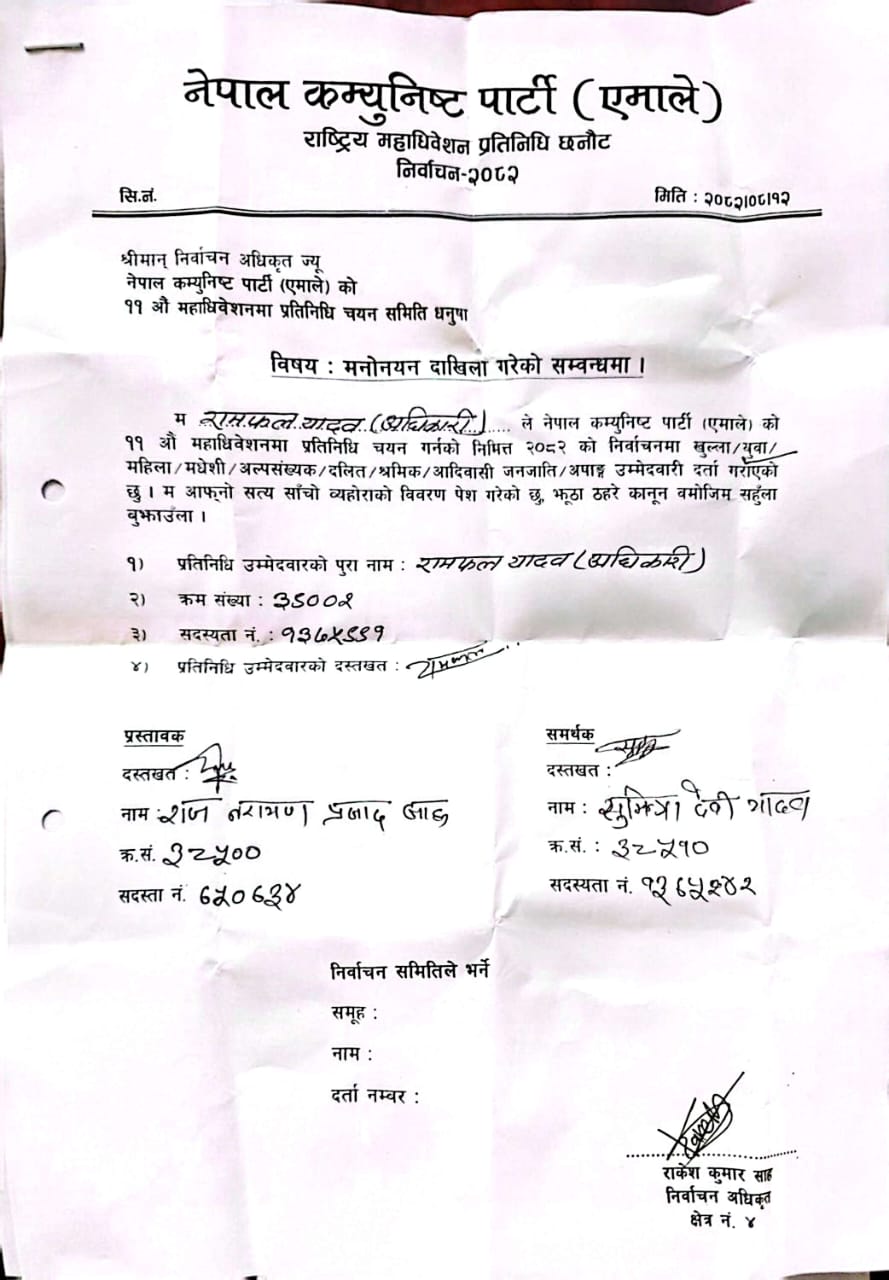 नेपाल कम्युनिष्ट पार्टी (एमाले)
राष्ट्रिय महाधिवेशन प्रतिनिधि छनौट
निर्वाचन-२०८२
सि.नं. मिति : २०८२।०८।१२
श्रीमान् निर्वाचन अधिकृत ज्यू
नेपाल कम्युनिष्ट पार्टी (एमाले) को
११ औ महाधिवेशनमा प्रतिनिधि चयन समिति धनुषा
विषय : मनोनयन दाखिला गरेको सम्वन्धमा ।
म रामफल यादव (अधिकारी) ले नेपाल कम्युनिष्ट पार्टी (एमाले) को
११ औ महाधिवेशनमा प्रतिनिधि चयन गर्नको निमित्त २०८२ को निर्वाचनमा खुल्ला/युवा/
महिला/मधेशी/अल्पसंख्यक/दलित/श्रमिक/आदिवासी जनजाति/अपाङ्ग उम्मेदवारी दर्ता गराँएको
छु । म आफ्नो सत्य साँचो व्यहोराको विवरण पेश गरेको छु, झूठा ठहरे कानून वमोजिम सहुँला
वुझाउँला ।
१) प्रतिनिधि उम्मेदवारको पुरा नाम : रामफल यादव (अधिकारी)
२) क्रम संख्या :
३) सदस्यता नं. :
४) प्रतिनिधि उम्मेदवारको दस्तखत :
प्रस्तावक
दस्तखत :
नाम : राज नरायण प्रसाद साह
क्र.सं. ३८५००
सदस्ता नं. ६५०६३४
समर्थक
दस्तखत :
नाम : सुमित्रा देवी यादव
क्र.सं. : ३८५१०
सदस्यता नं. १३६५२४२
निर्वाचन समितिले भर्ने
समूह :
नाम :
दर्ता नम्वर :
राकेश कुमार साह
निर्वाचन अधिकृत
क्षेत्र नं. ४